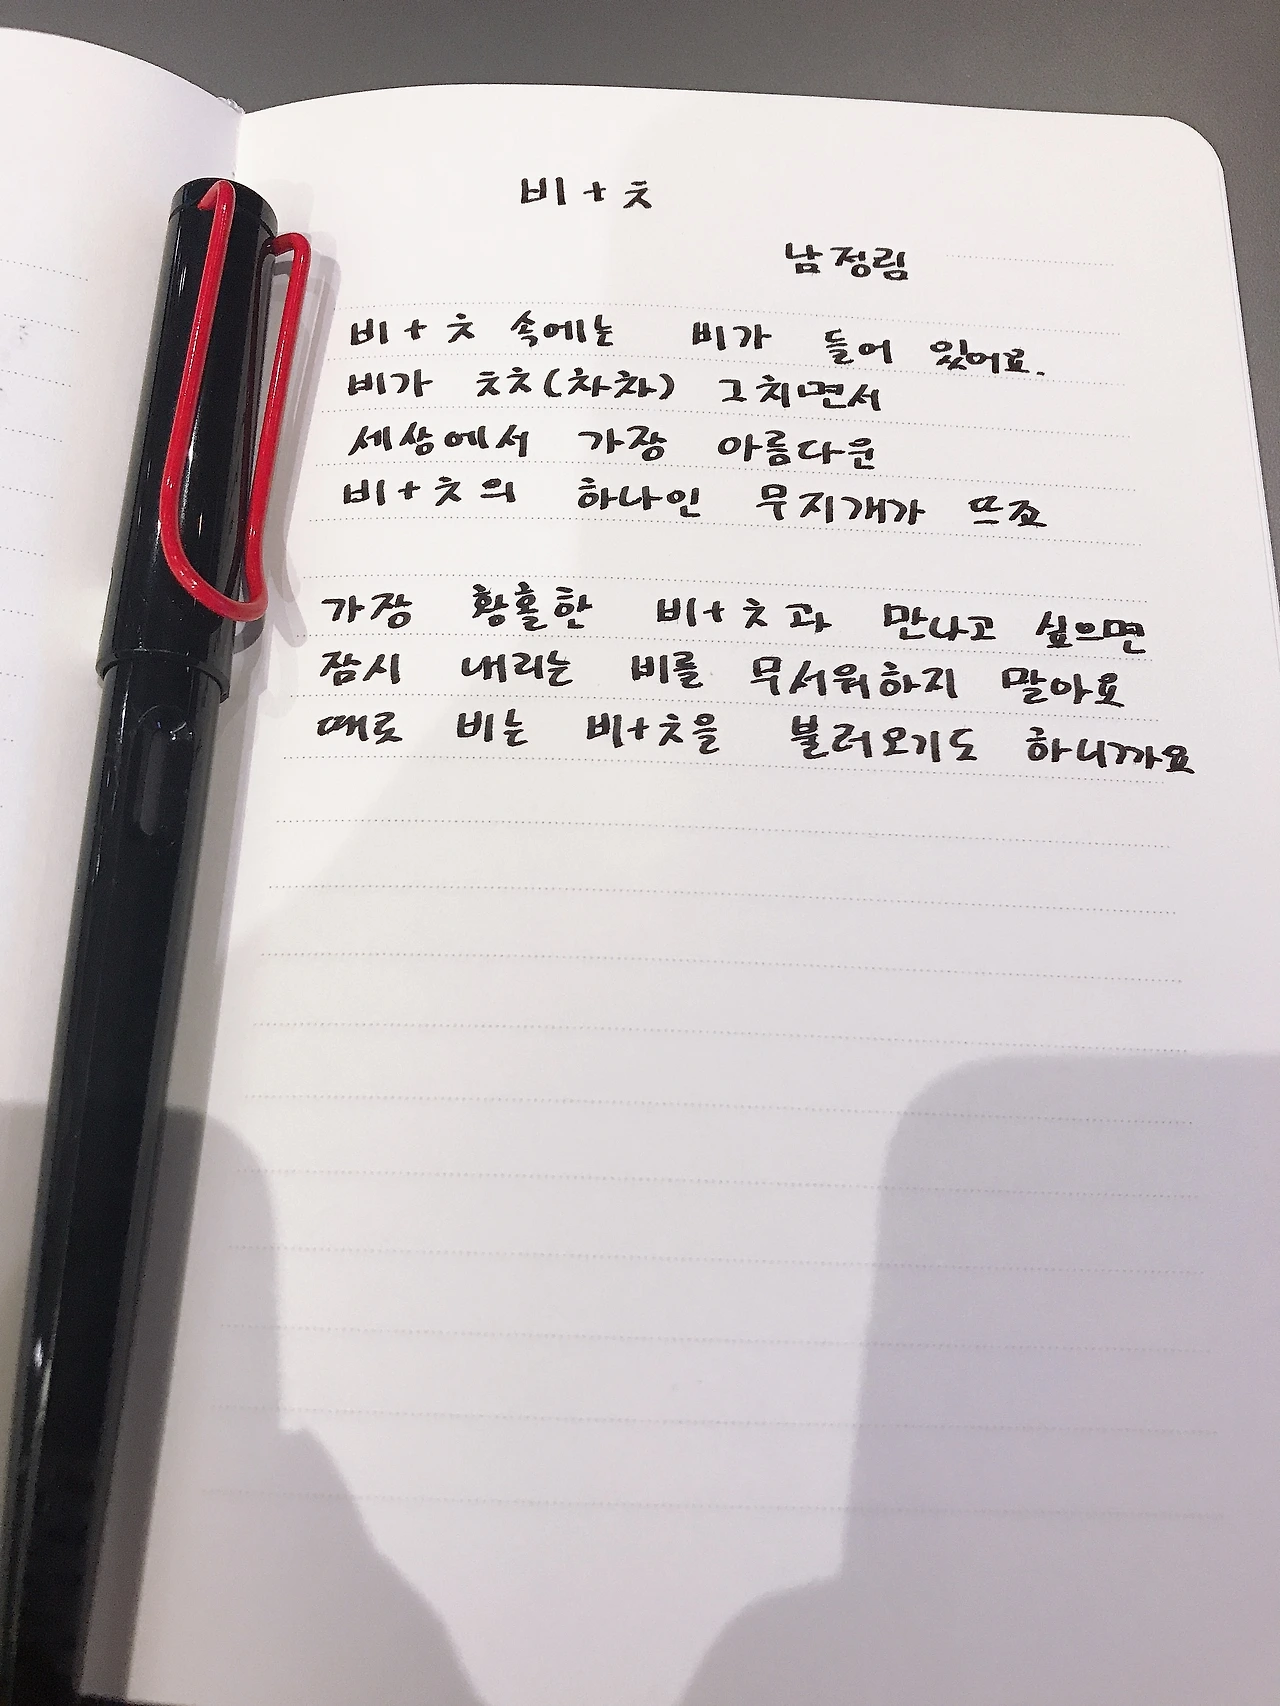 비+ㅊ
남정림
비+ㅊ 속에는 비가 들어 있어요.
비가 ㅊㅊ(차차) 그치면서
세상에서 가장 아름다운
비+ㅊ의 하나인 무지개가 뜨죠
가장 황홀한 비+ㅊ과 만나고 싶으면
잠시 내리는 비를 무서워하지 말아요
때로 비는 비+ㅊ을 불러오기도 하니까요